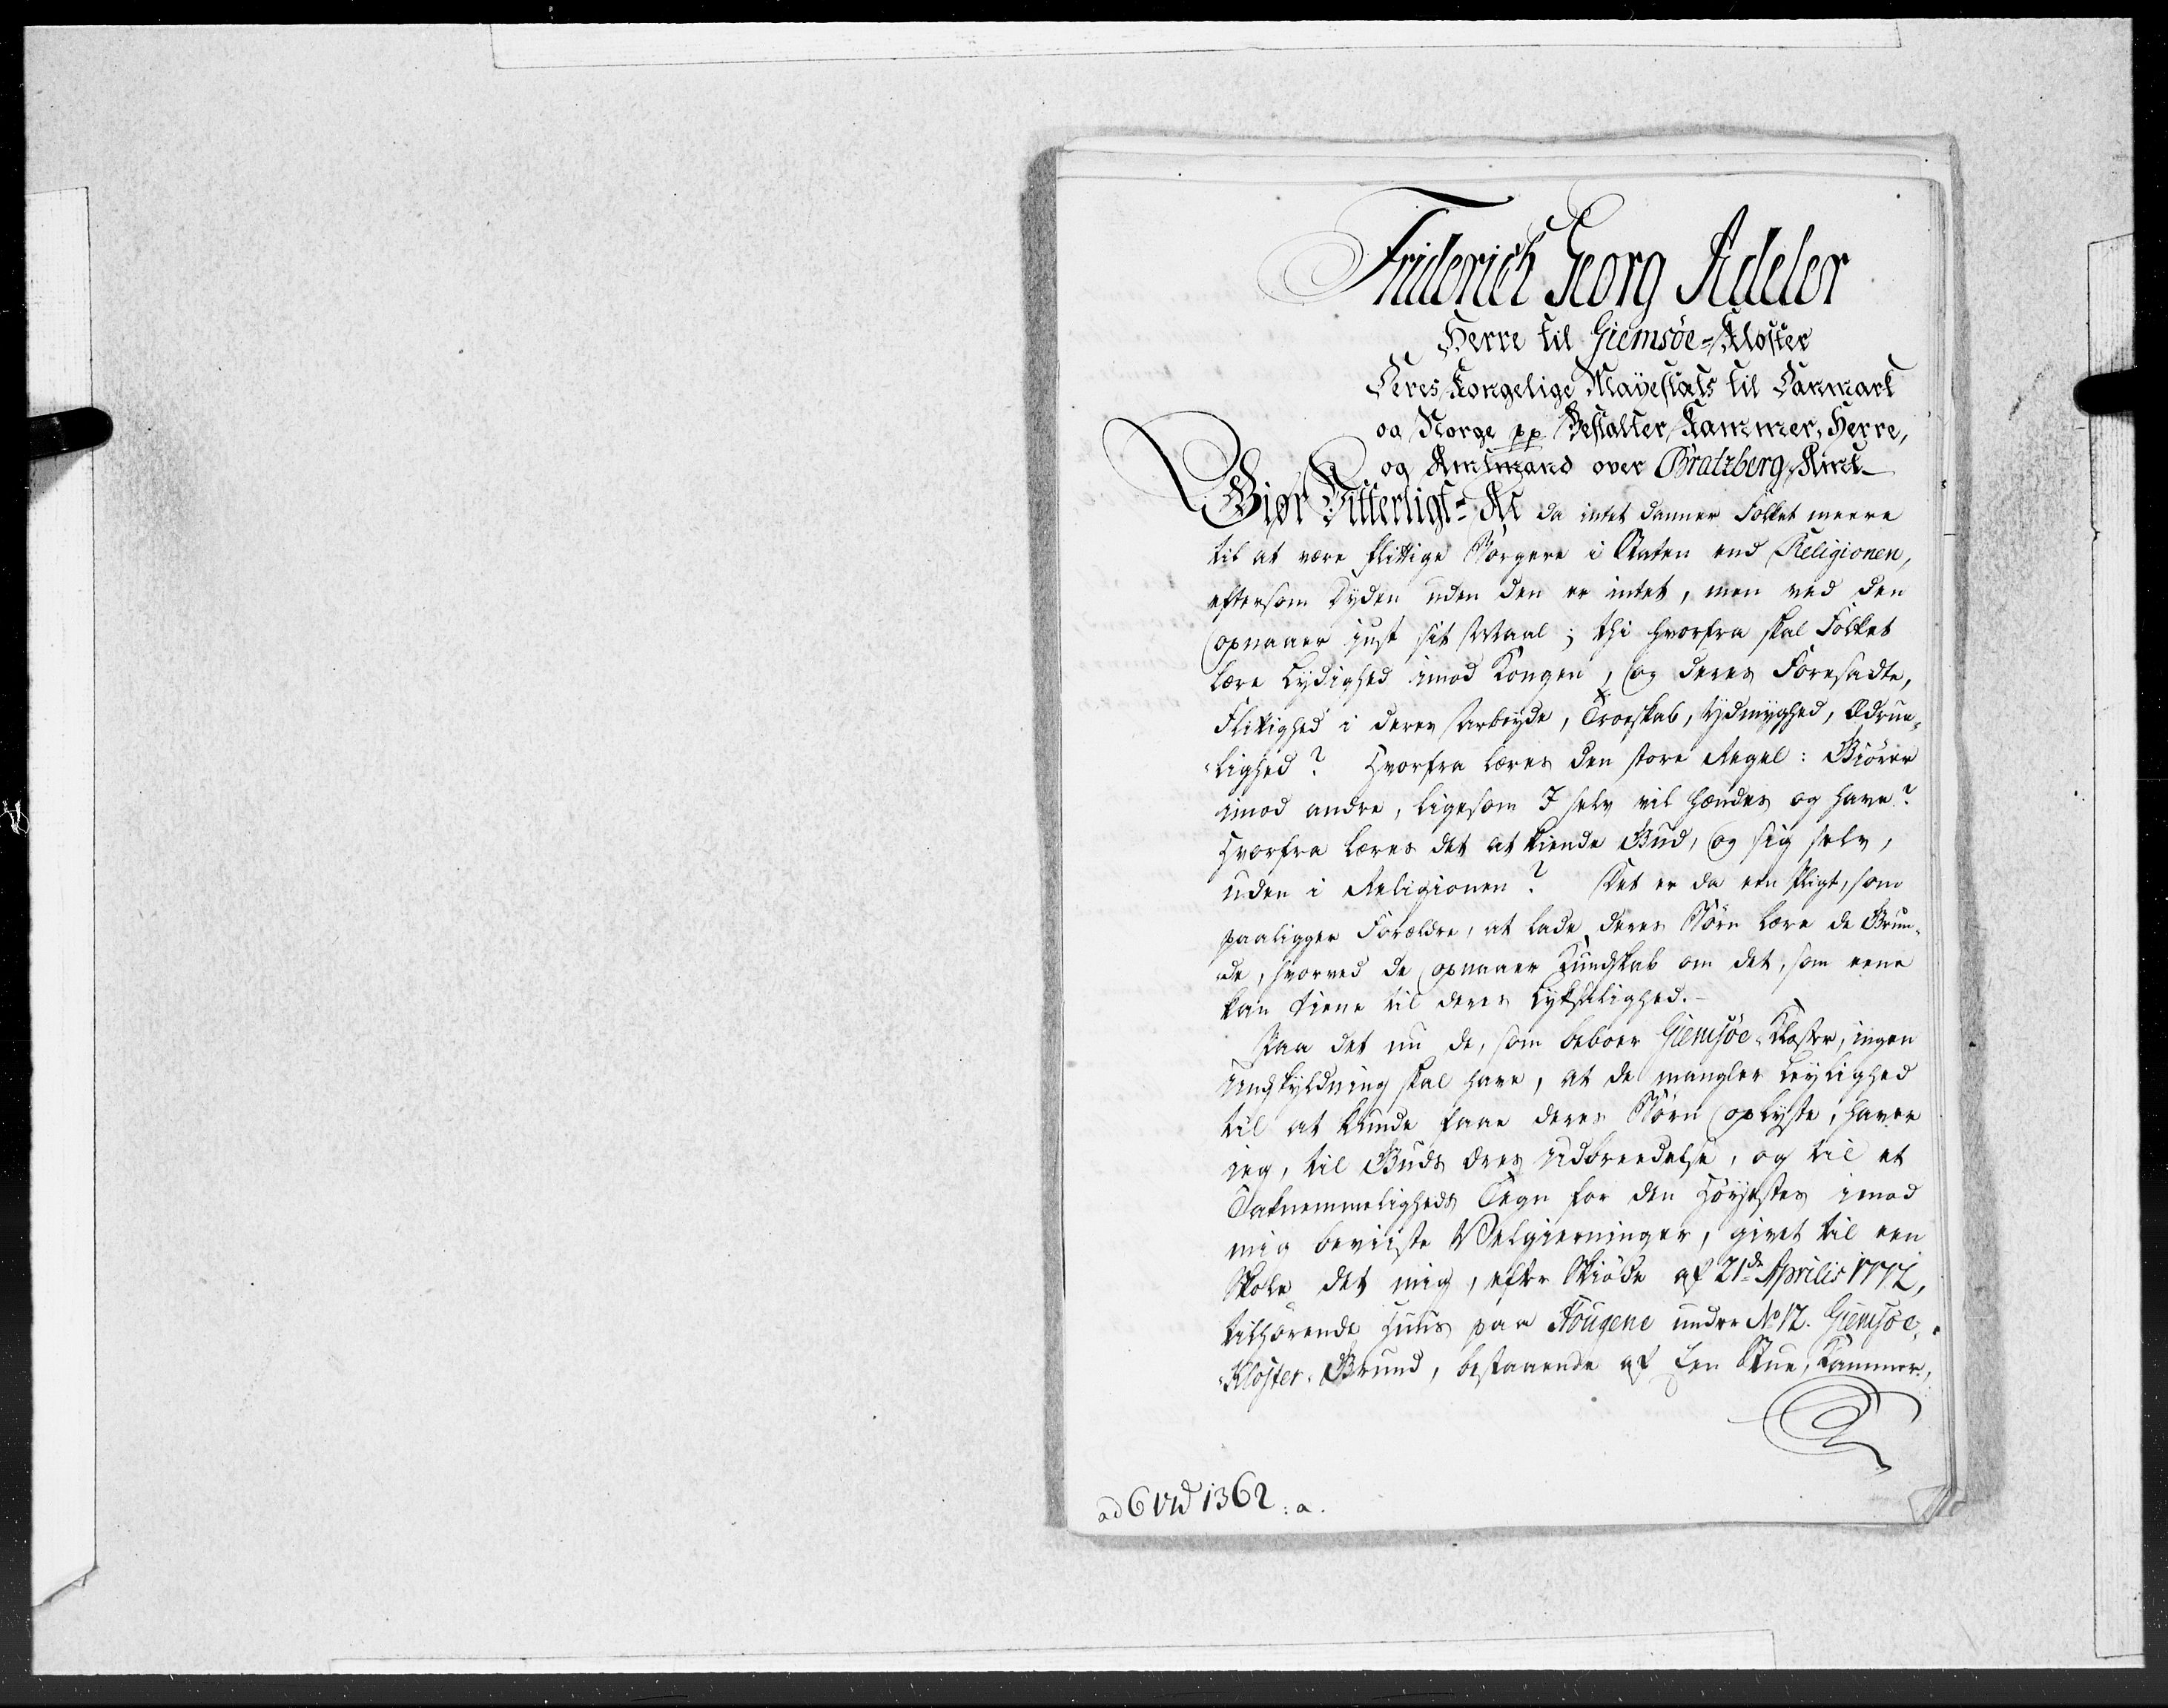 Friderich Georg Adeler
Herre til Giemsøe-Kloster
Deres Kongelige Mayestæts til Danmark
og Norge pp Bestalter Kammer-Herre,
og Amtmand over Bratzberg Amt
Giør Vitterligt: At da intet danner Folket meere
til at være flittige Borgere i Staten end Religionen,
eftersom Dyden uden den er intet, men ved den
opnaaer just sit Maal; thi hvorfra skal Folket
lære Lydighed imod Kongen, og deres Foresadte,
Flitighed i deres Arbeyde, Troeskab, Ydmyghed, Ædrue-
lighed? Hvorfra læres den store Regel: Giører
imod andre, ligesom I selv vil hændes og have?
Hvorfra læres det at kiende Gud, og sig selv,
uden i Religionen? Det er da een Pligt, som
paaligger Forældre, at lade deres Børn lære de Grun-
de, hvorved de opnaaer Kundskab om det, som eene
kan tiene til deres Lyksalighed.
Paa det nu de, som beboer Giemsøe-Kloster, ingen
Undskyldning skal have, at de mangler Leylighed
til at kunde faae deres Børn oplyste, haver
jeg, til Guds Æres Udbreedelse, og til et
Taknemmeligheds Tegn for den Høyestes imod
mig beviiste Velgierninger, givet til een
Skole det mig, efter Skiøde af 21de Aprilis 1772,
tilhørende Huus paa Hougene under No 17. Giemsøe-
Kloster-Grund, bestaaende af Een Stue, Kammer,
ad 6 1362: a.